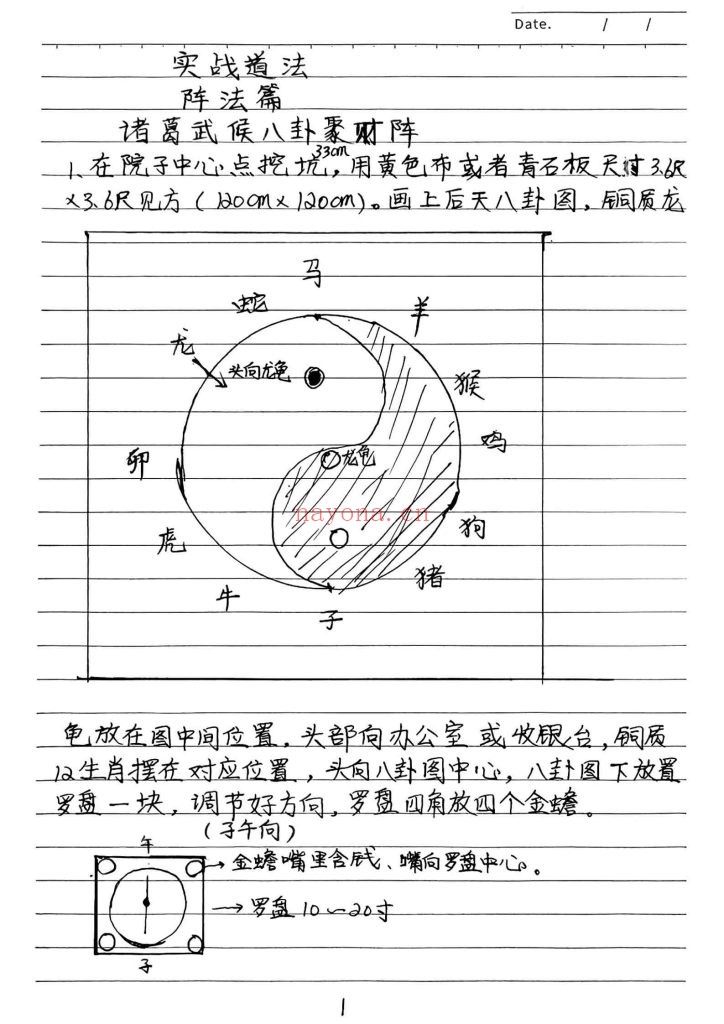 Date. / /
实战道法
阵法篇
诸葛武候八卦聚财阵
33cm
1、在院子中心点挖坑,用黄色布或者青石板尺寸3.6尺
×3.6尺见方(120cm×120cm)。画上后天八卦图,铜质龙
马
蛇
羊
龙
头向龙龟
猴
鸡
卯
龙龟
nayona.cn
狗
虎
猪
牛
子
龟放在图中间位置,头部向办公室或收银台,铜质
12生肖摆在对应位置,头向八卦图中心,八卦图下放置
罗盘一块,调节好方向,罗盘四角放四个金蟾。
(子午向)
午
金蟾嘴里含钱、嘴向罗盘中心。
罗盘10~20寸
子
1